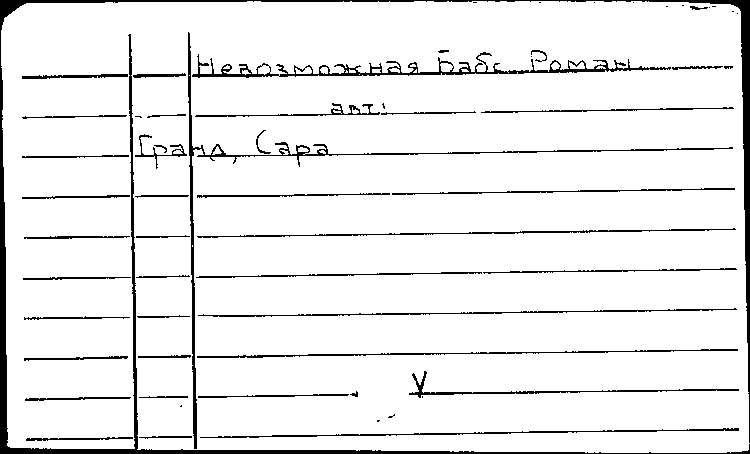 Невозможная Бабс. Роман.
авт:
Гранд, Сара
V